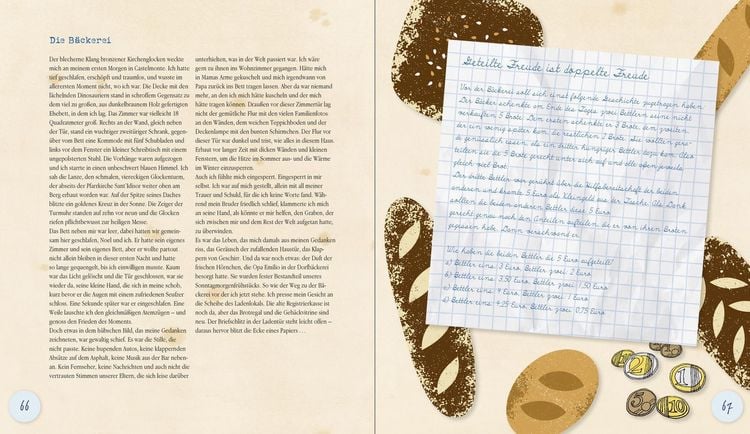 Die Bäckerei
Der blecherne Klang bronzener Kirchenglocken weckte
mich an meinem ersten Morgen in Castelmonte. Ich hatte
tief geschlafen, erschöpft und traumlos, und wusste im
allerersten Moment nicht, wo ich war. Die Decke mit den
lächelnden Dinosauriern stand in schroffem Gegensatz zu
dem viel zu großen, aus dunkelbraunem Holz gefertigten
Ehebett, in dem ich lag. Das Zimmer war vielleicht 18
Quadratmeter groß. Rechts an der Wand, gleich neben
der Tür, stand ein wuchtiger zweitüriger Schrank, gegen-
über vom Bett eine Kommode mit fünf Schubladen und
links vor dem Fenster ein kleiner Schreibtisch mit einem
ungepolsterten Stuhl. Die Vorhänge waren aufgezogen
und ich starrte in einen unbeschwert blauen Himmel. Ich
sah die Lanze, den schmalen, viereckigen Glockenturm,
der abseits der Pfarrkirche Sant'Isidor weiter oben am
Berg erbaut worden war. Auf der Spitze seines Daches
blitzte ein goldenes Kreuz in der Sonne. Die Zeiger der
Turmuhr standen auf zehn vor neun und die Glocken
riefen pflichtbewusst zur heiligen Messe.
Das Bett neben mir war leer, dabei hatten wir gemein-
sam hier geschlafen, Noel und ich. Er hatte sein eigenes
Zimmer und sein eigenes Bett, aber er wollte partout
nicht allein bleiben in dieser ersten Nacht und hatte
so lange gequengelt, bis ich einwilligen musste. Kaum
war das Licht gelöscht und die Tür geschlossen, war sie
wieder da, seine kleine Hand, die sich in meine schob,
kurz bevor er die Augen mit einem zufriedenen Seufzer
schloss. Eine Sekunde später war er eingeschlafen. Eine
Weile lauschte ich den gleichmäßigen Atemzügen – und
genoss den Frieden des Moments.
Doch etwas in dem hübschen Bild, das meine Gedanken
zeichneten, war gewaltig schief. Es war die Stille, die
nicht passte. Keine hupenden Autos, keine klappernden
Absätze auf dem Asphalt, keine Musik aus der Bar neben-
an. Kein Fernseher, keine Nachrichten und auch nicht die
vertrauten Stimmen unserer Eltern, die sich leise darüber
unterhielten, was in der Welt passiert war. Ich wäre
gern zu ihnen ins Wohnzimmer gegangen. Hätte mich
in Mamas Arme gekuschelt und mich irgendwann von
Papa zurück ins Bett tragen lassen. Aber da war niemand
mehr, an den ich mich hätte kuscheln und der mich
hätte tragen können. Draußen vor dieser Zimmertür lag
nicht der gemütliche Flur mit den vielen Familienfotos
an den Wänden, dem weichen Teppichboden und der
Deckenlampe mit den bunten Schirmchen. Der Flur vor
dieser Tür war dunkel und trist, wie alles in diesem Haus.
Erbaut vor langer Zeit mit dicken Wänden und kleinen
Fenstern, um die Hitze im Sommer aus- und die Wärme
im Winter einzusperren.
Auch ich fühlte mich eingesperrt. Eingesperrt in mir
selbst. Ich war auf mich gestellt, allein mit all meiner
Trauer und Schuld, für die ich keine Worte fand. Wäh-
rend mein Bruder friedlich schlief, klammerte ich mich
an seine Hand, als könnte er mir helfen, den Graben, der
sich zwischen mir und dem Rest der Welt aufgetan hatte,
zu überwinden.
Es war das Leben, das mich damals aus meinen Gedanken
riss, das Geräusch der zufallenden Haustür, das Klap-
pern von Geschirr. Und da war noch etwas: der Duft der
frischen Hörnchen, die Opa Emilio in der Dorfbäckerei
besorgt hatte. Sie wurden fester Bestandteil unseres
Sonntagmorgenfrühstücks. So wie der Weg zu der Bä-
ckerei vor der ich jetzt stehe. Ich presse mein Gesicht an
die Scheibe des Ladenlokals. Die alte Registrierkasse ist
noch da, aber das Brotregal und die Gebäckstirne sind
neu. Der Briefschlitz in der Ladentür steht leicht offen –
daraus hervor blitzt die Ecke eines Papiers ...
66
Geteilte Freude ist doppelte Freude
Vor der Bäckerei soll sich einst folgende Geschichte zugetragen haben:
Der Bäcker schenkte am Ende des Tages zwei Bettlern seine nicht
verkauften 5 Brote. Dem ersten schenkte er 3 Brote, dem zweiten,
der ein wenig später kam, die restlichen 2 Brote. Sie wollten gerade
genüsslich essen, als ein dritter hungriger Bettler dazu kam. Also
teilten sie die 5 Brote gerecht unter sich auf und alle aßen jeweils
gleich viel Brot.
Der dritte Bettler war gerührt über die Hilfsbereitschaft der beiden
anderen und kramte 5 Euro als Kleingeld aus der Tasche. Als Dank
sollten die beiden anderen Bettler diese 5 Euro
gerecht genau nach den Anteilen aufteilen, die er von ihren Broten
gegessen habe. Dann verschwand er.
Wie haben die beiden Bettler die 5 Euro aufgeteilt?
a) Bettler eins: 3 Euro, Bettler zwei: 2 Euro
b) Bettler eins: 3,50 Euro, Bettler zwei: 1,50 Euro
c) Bettler eins: 4 Euro, Bettler zwei: 1 Euro
d) Bettler eins: 4,25 Euro, Bettler zwei: 0,75 Euro
2
1
5
10
67